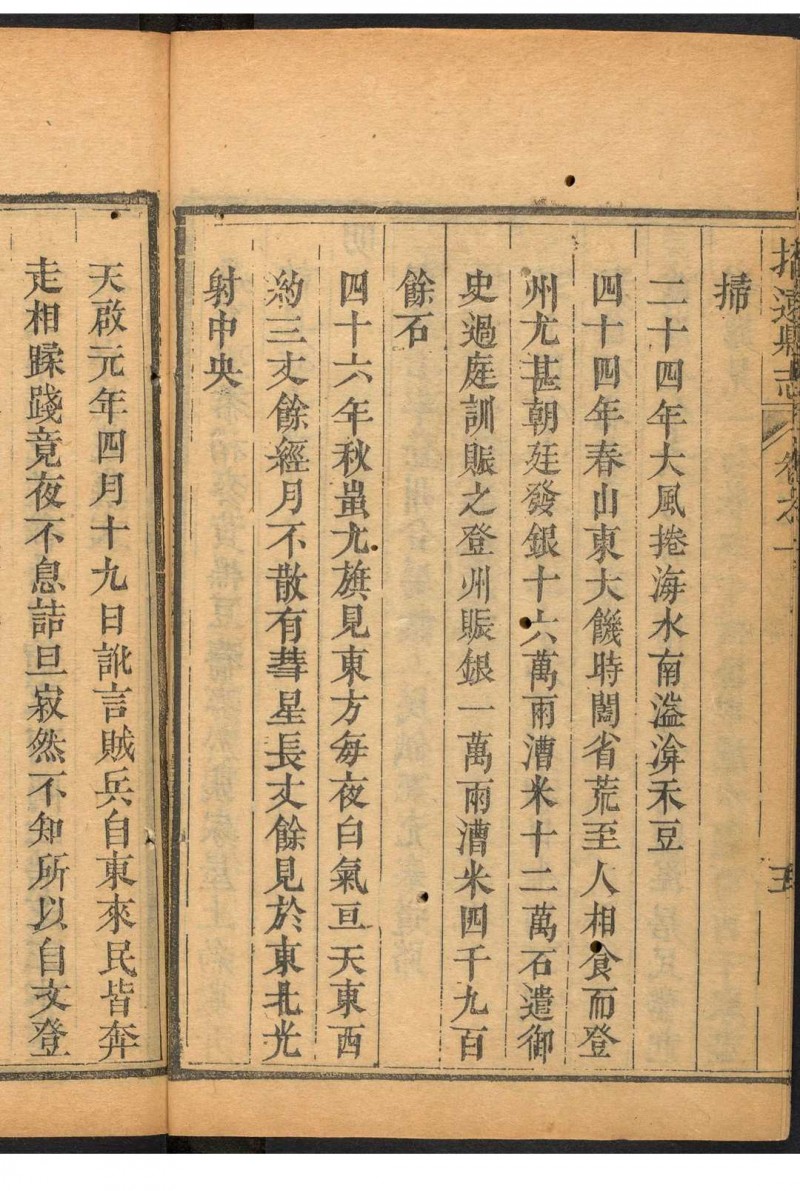 招遠縣志 卷之一 五
掃
二十四年大風捲海水南溢渰禾豆
四十四年春山東大饑時闔省荒至人相食而登
州尤甚朝廷發銀十六萬兩漕米十二萬石遣御
史過庭訓賑之登州賑銀一萬兩漕米四千九百
餘石
四十六年秋蚩尤旗見東方每夜白氣亘天東西
約三丈餘經月不散有彗星長丈餘見於東北光
射中央
天啟元年四月十九日訛言賊兵自東來民皆奔
走相蹂踐竟夜不息詰旦寂然不知所以自文登